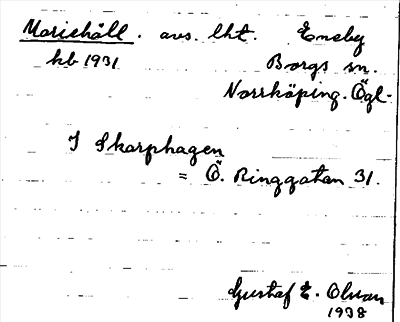 Mariehäll. avs. lht. Eneby
kb 1931 Borgs sn.
Norrköping. Ögl.
I Skarphagen
= Ö. Ringgatan 31.
Gustaf E. Olsson
1938